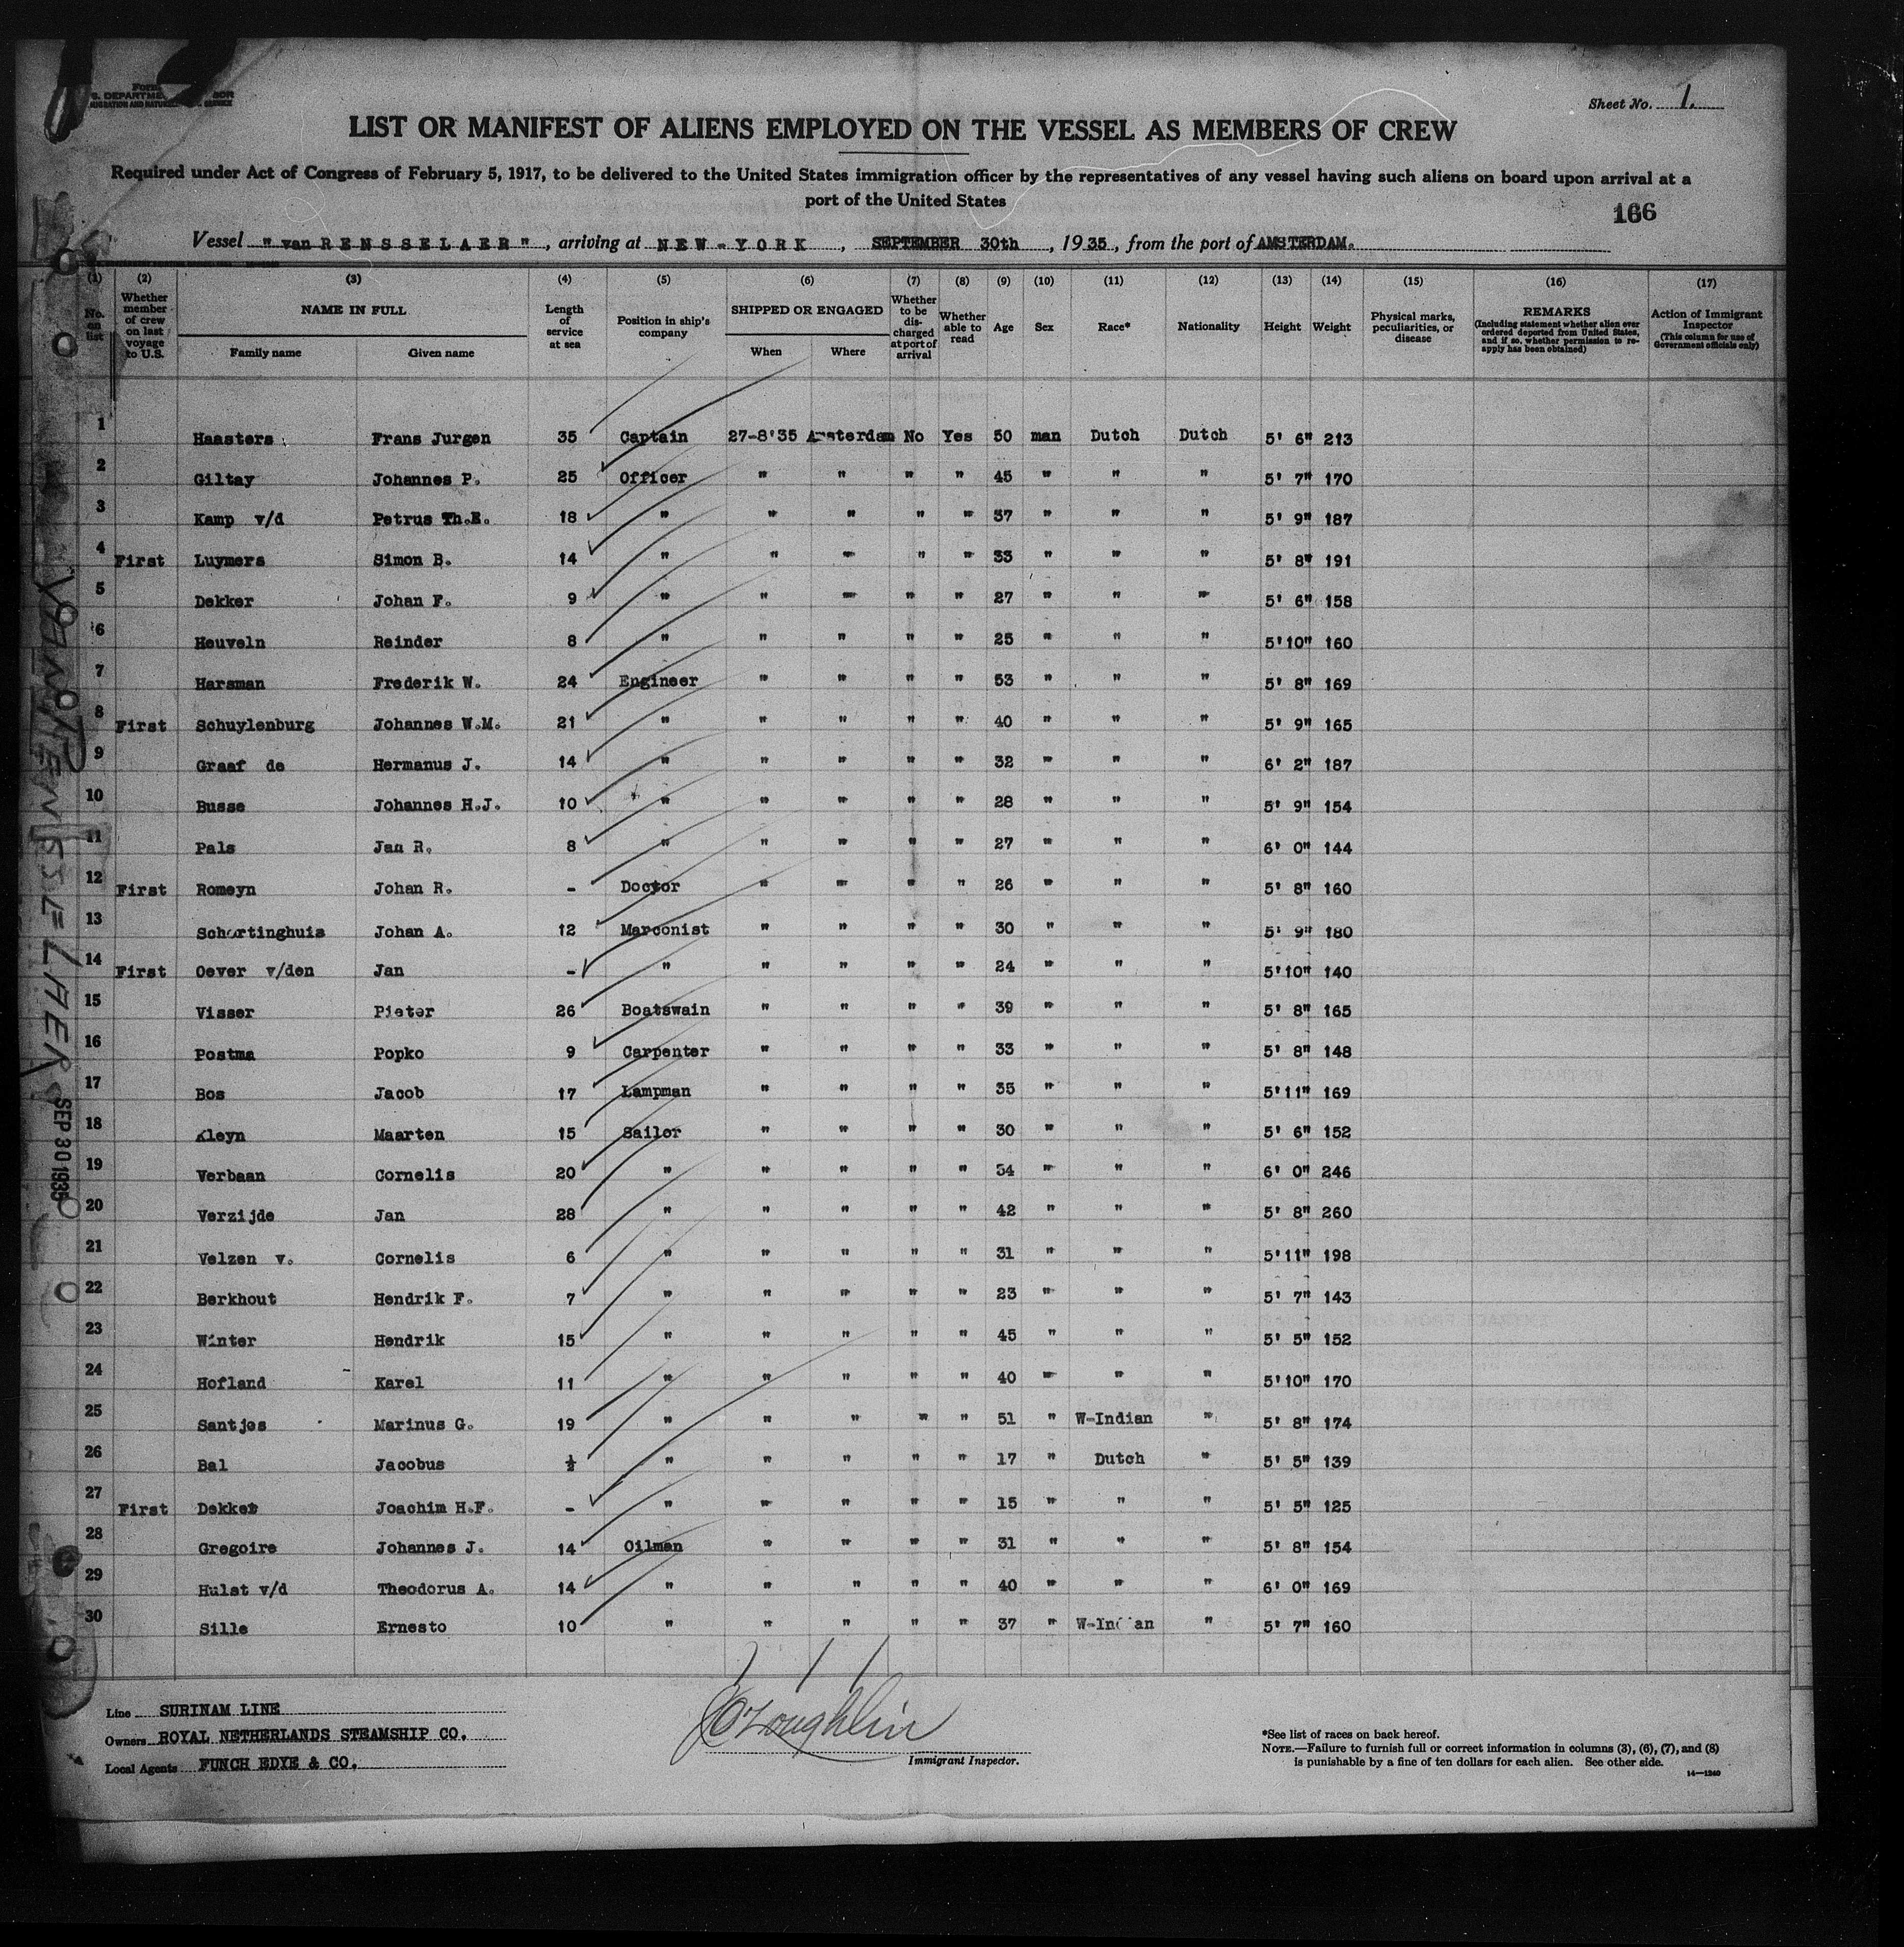 Form
S. DEPARTME OR
MIGRATION AND NATUR SERVICE
Sheet No. 1.
LIST OR MANIFEST OF ALIENS EMPLOYED ON THE VESSEL AS MEMBERS OF CREW
Required under Act of Congress of February 5, 1917, to be delivered to the United States immigration officer by the representatives of any vessel having such aliens on board upon arrival at a
port of the United States
166
Vessel "van RENSSELAER", arriving at NEW-YORK, SEPTEMBER 30th, 1935, from the port of AMSTERDAM.
(1) (2) (3) (4) (5) (6) (7) (8) (9) (10) (11) (12) (13) (14) (15) (16) (17)
No. on list
Whether member of crew on last voyage to U.S.
NAME IN FULL
Family name Given name
Length of service at sea
Position in ship's company
SHIPPED OR ENGAGED
When Where
Whether to be discharged at port of arrival
Whether able to read
Age
Sex
Race*
Nationality
Height
Weight
Physical marks, peculiarities, or disease
REMARKS
(Including statement whether alien ever ordered deported from United States, and if so, whether permission to reapply has been obtained)
Action of Immigrant Inspector
(This column for use of Government officials only)
1 Haasters Frans Jurgen 35 Captain 27-8'35 Amsterdam No Yes 50 man Dutch Dutch 5' 6" 213
2 Giltay Johannes P. 25 Officer " " " " 45 " " " 5' 7" 170
3 Kamp v/d Petrus Th.E. 18 " " " " " 37 " " " 5' 9" 187
4 First Luymers Simon B. 14 " " " " " 33 " " " 5' 8" 191
5 Dekker Johan F. 9 " " " " " 27 " " " 5' 6" 158
6 Heuveln Reinder 8 " " " " " 25 " " " 5'10" 160
7 Harsman Frederik W. 24 Engineer " " " " 53 " " " 5' 8" 169
8 First Schuylenburg Johannes W.M. 21 " " " " " 40 " " " 5' 9" 165
9 Graaf de Hermanus J. 14 " " " " " 32 " " " 6' 2" 187
10 Busse Johannes H.J. 10 " " " " " 28 " " " 5' 9" 154
11 Pals Jan R. 8 " " " " " 27 " " " 6' 0" 144
12 First Romeyn Johan R. - Doctor " " " " 26 " " " 5' 8" 160
13 Schortinghuis Johan A. 12 Marconist " " " " 30 " " " 5' 9" 180
14 First Oever v/den Jan - " " " " " 24 " " " 5'10" 140
15 Visser Pieter 26 Boatswain " " " " 39 " " " 5' 8" 165
16 Postma Popko 9 Carpenter " " " " 33 " " " 5' 8" 148
17 Bos Jacob 17 Lampman " " " " 35 " " " 5'11" 169
18 Kleyn Maarten 15 Sailor " " " " 30 " " " 5' 6" 152
19 Verbaan Cornelis 20 " " " " " 34 " " " 6' 0" 246
20 Verzijde Jan 28 " " " " " 42 " " " 5' 8" 260
21 Velzen v. Cornelis 6 " " " " " 31 " " " 5'11" 198
22 Berkhout Hendrik F. 7 " " " " " 23 " " " 5' 7" 143
23 Winter Hendrik 15 " " " " " 45 " " " 5' 5" 152
24 Hofland Karel 11 " " " " " 40 " " " 5'10" 170
25 Santjes Marinus G. 19 " " " " " 51 " W-Indian " 5' 8" 174
26 Bal Jacobus ½ " " " " " 17 " Dutch " 5' 5" 139
27 First Dekker Joachim H.F. - " " " " " 15 " " " 5' 5" 125
28 Gregoire Johannes J. 14 Oilman " " " " 31 " " " 5' 8" 154
29 Hulst v/d Theodorus A. 14 " " " " " 40 " " " 6' 0" 169
30 Sille Ernesto 10 " " " " " 37 " W-Indian " 5' 7" 160
SEP 30 1935
Line SURINAM LINE
Owners ROYAL NETHERLANDS STEAMSHIP CO.
Local Agents FUNCH EDYE & CO.
O'Loughlin
Immigrant Inspector.
*See list of races on back hereof.
NOTE.—Failure to furnish full or correct information in columns (3), (6), (7), and (8)
is punishable by a fine of ten dollars for each alien. See other side.
14—1240